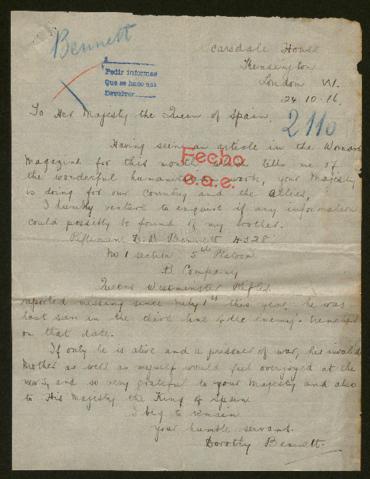 Bennett
Carsdale House
Kensington
London W.
24.10.16
Pedir informes
Que se hace nos
Devolver
To Her Majesty the Queen of Spain,
2110
Having seen an article in the Womans
Magazine for this month which tells me of
Fecho
the wonderful humanitarian work, your Majesty
e.a.e.
is doing for our Country and the Allies,
I humbly venture to enquire if any information
could possibly be found of my brother.
Rifleman Bennett 4528
No 1 section 5th Platoon
Company
Queens Westminster Rifles
reported missing since July 1st this year, he was
last seen in the third line of the enemy's trenches
on that date.
If only he is alive and a prisoner of war, his invalid
Mother as well as myself would feel overjoyed at the
news, and so very grateful to your Majesty and also
to His Majesty the King of Spain
I beg to remain
Your humble servant.
Dorothy Bennett.